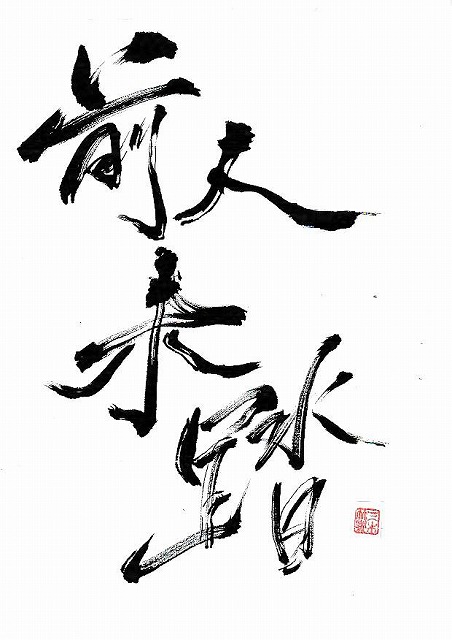 前人
未踏